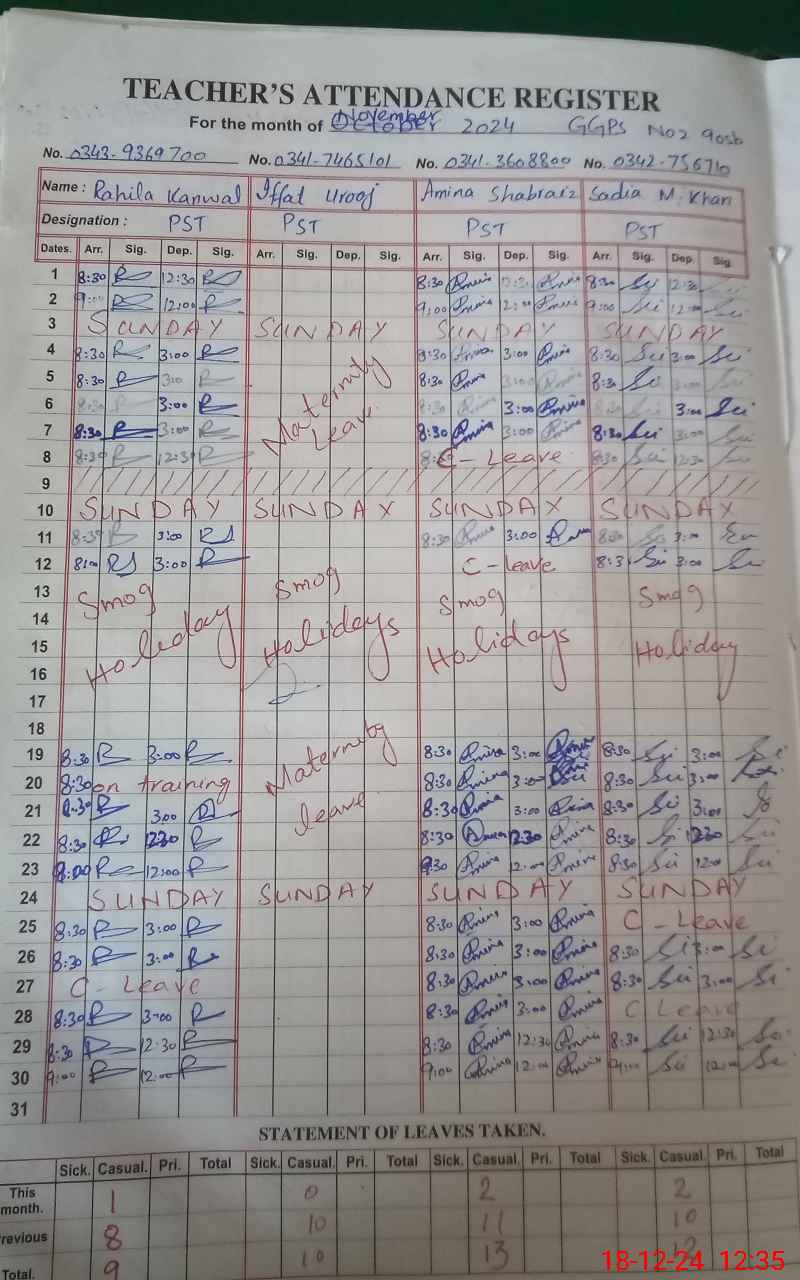 TEACHER'S ATTENDANCE REGISTER
For the month of November 2024 GGPS No2 90sb
No. 0343-9369700 No. 0341-7465101 No. 0341-3608800 No. 0342-756710
Name : Rahila Kanwal Iffat Urooj Amina Shabraiz Sadia M. Khan
Designation : PST PST PST PST
Dates. Arr. Sig. Dep. Sig. Arr. Sig. Dep. Sig. Arr. Sig. Dep. Sig. Arr. Sig. Dep. Sig.
1 8:30 12:30 8:30 Amina Amina 8:30 12:30
2 9:00 12:00 9:00 Amina 12:00 Amina 9:00 12:00
3 SUNDAY SUNDAY SUNDAY SUNDAY
4 8:30 3:00 8:30 Amina 3:00 Amina 8:30 3:00
5 8:30 3:00 Maternity 8:30 Amina 3:00 Amina 8:30 3:00
6 8:30 3:00 Leave 8:30 Amina 3:00 Amina 3:00
7 8:30 3:00 8:30 Amina 3:00 Amina 8:30 3:00
8 8:30 12:30 C - Leave 8:30 12:30
9
10 SUNDAY SUNDAY SUNDAY SUNDAY
11 8:30 3:00 8:30 Amina 3:00 8:30 3:00
12 3:00 C - Leave 8:3 3:00
13 Smog Smog Smog Smog
14
15 Holiday Holidays Holidays Holiday
16
17
18
19 8:30 3:00 Maternity 8:30 Amina 3:00 Amina 8:30 3:00
20 8:30 on training 8:30 Amina 3:00 8:30 3:00
21 8:30 3:00 leave 8:30 Amina 3:00 Amina 8:30 3:00
22 8:30 1230 8:30 Amina 12:30 Amina 8:30 1230
23 12:00 Amina 12:00 Amina 8:30 12:00
24 SUNDAY SUNDAY SUNDAY SUNDAY
25 8:30 3:00 8:30 Amina 3:00 Amina C - Leave
26 8:30 3:00 8:30 Amina 3:00 Amina 8:30 3:00
27 C - Leave 8:30 Amina 3:00 Amina 8:30 3:00
28 8:30 3:00 8:30 Amina 3:00 Amina C Leave
29 8:30 12:30 8:30 Amina 12:30 Amina 8:30 12:30
30 9:00 12:00 9:00 Amina 12:00 Amina 9:00 12:00
31
STATEMENT OF LEAVES TAKEN.
Sick. Casual. Pri. Total Sick. Casual. Pri. Total Sick. Casual. Pri. Total Sick. Casual. Pri. Total
This month. 1 0 2 2
revious 8 10 11 10
Total. 9 10 13 12
18-12-24 12:35